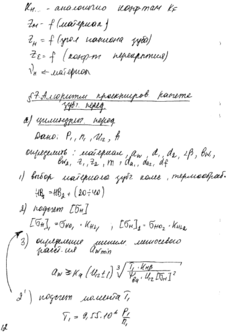 - аналогично коэф-там K_F
Z_M = f (материал)
Z_H = f (угол наклона зуба)
Z_ε = f (коэф-т перекрытия)
материал
§7. Алгоритм проектиров. расчета
зубч. перед.
а) цилиндрич. перед.
Дано: P₁, n₁, U₂, h
определить: материал, a_w, d₁, d₂, β, b_w₁,
b_w₂, z₁, z₂, m,
1) выбор материала зубч. колес, термообраб.
HB₁ = HB₂ + (20÷40)
2) подсчет [σ_H]
[σ_H]₁ = σ_HO₁ · K_HL₁ , [σ_H]₂ = σ_HO₂ · K_HL₂
3) определение миним. межосевого
расст-ия a_w min
2') подсчет момента T₁
T₁ = 9,55·10⁶ P₁/n₁